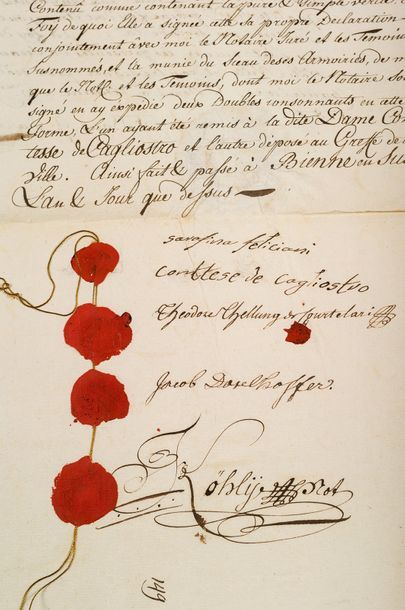 Contenu comme contenant la pure & simple verité. En
Foy de quoi Elle a signée cette sa propre Declaration
conjointement avec moi le Notaire Juré et les Temoins
Susnommés, et la munie du Sceau de ses Armoiries, de m
que le Notre et les Temoins, dont moi le Notaire so
signé en ay expedié deux Doubles consonnants en cette
forme, L'un ayant été remis à la dite Dame Co
tesse de Cagliostro et l'autre déposé au Greffe de
Ville. Ainsi fait & passé à Bienne en Sui
L'an & Jour que dessus
sarafina feliciani
comtese de cagliostro
Theodore Thellung de Courtelari
Jacob Daxelhoffer.
Köhly Not
149